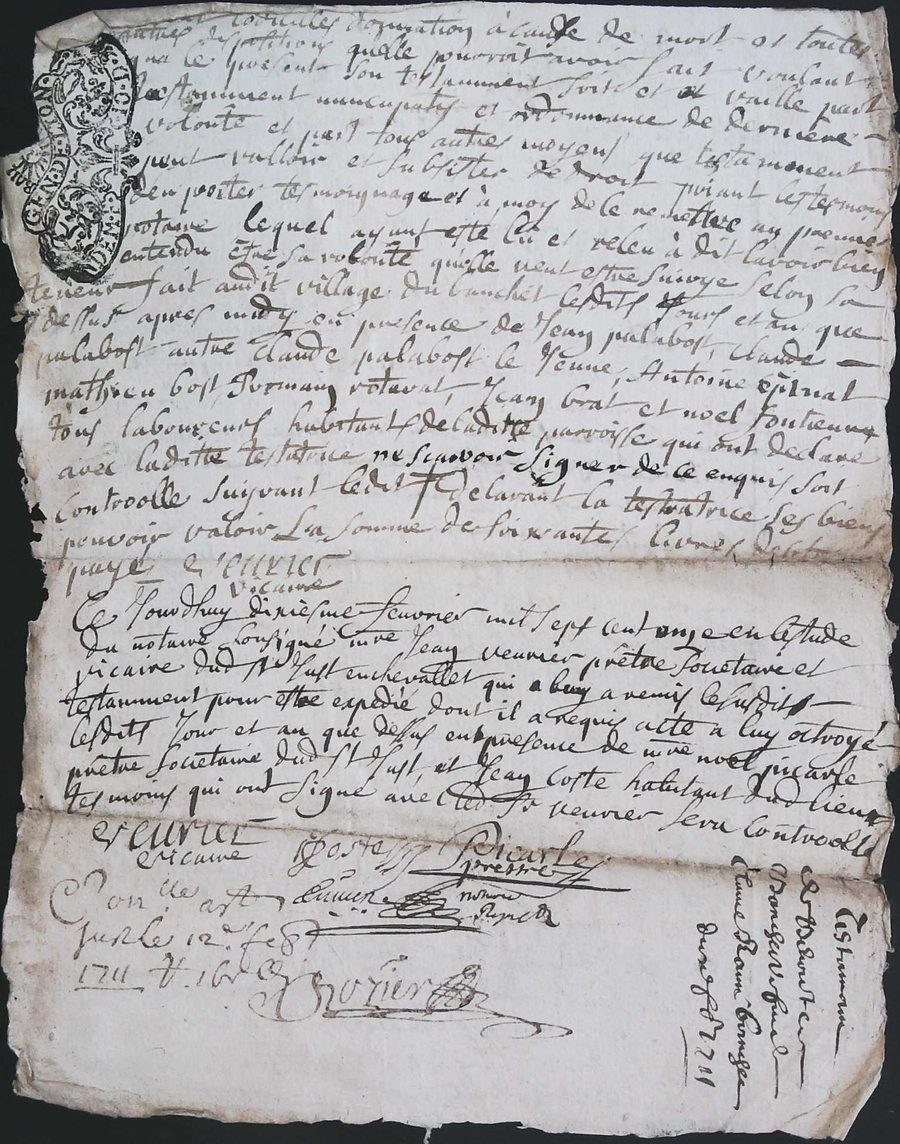 autres codicilles donnation à cause de mort et toutes
autres dispositions quelle pourroit avoir fait voulant
que le present son testamment soit et et vaille part
testamment nuncupatif et ordonnance de derniere
volonté et part tous autres moyens que testamment
peut valloir et subsister de droit priant les tesmoins
den porter tesmoignage et à moy de le remettre au premier
notaire lequel ayant esté lu et releu à dit lavoir bien
entendu estre sa volonté quelle veut estre suivye selon sa
teneur fait audit village du banchet lesdits jours et an que
dessus apres midy en presence de Jean palabost, Claude
palabost autre Claude palabost le Jeune, Antoine epinat
mathieu bost, Romain roterat, Jean brat et noel fontienne
tous laboureurs habitants de laditte parroisse qui ont declare
avec laditte testatrice ne scavoir signer de ce enquis soit
controolle suivant ledit declarant la testatrice ses biens
pouvoir valoir La somme de soixante livres
paye Veurier
vicaire
Ce Jourdhuy dixiesme feuvrier mil sept cent onze en lestude
du notaire soussigné mre Jean veurier prêtre societaire et
vicaire dud St Just en chevallet qui a luy a remis le susdit
testamment pour estre expedié dont il a requis acte à luy octroyé
lesdits Jour et an que dessus en presence de mre noel picarle
prêtre societaire dud St Just, et Jean Coste habitant dud lieu
tesmoins qui ont signé avec led Sr veurier sera controollé
Veurier
vicaire
JCoste
Picarle
prestre
notaire
Con.lle a St
Just le 12e feb.
1711
Rorier
Testament
GEN DE LYON